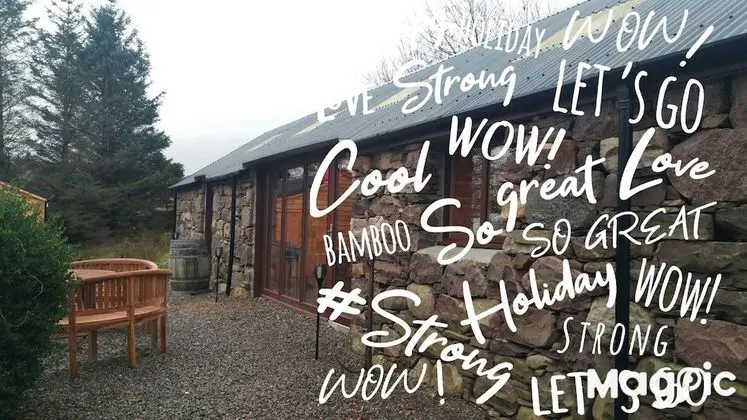 HOLIDAY WOW!
LOVE Strong LET'S GO
Cool WOW! great Love
BAMBOO So SO GREAT
#Strong Holiday WOW!
STRONG
WOW! LET'S GO
Magpic